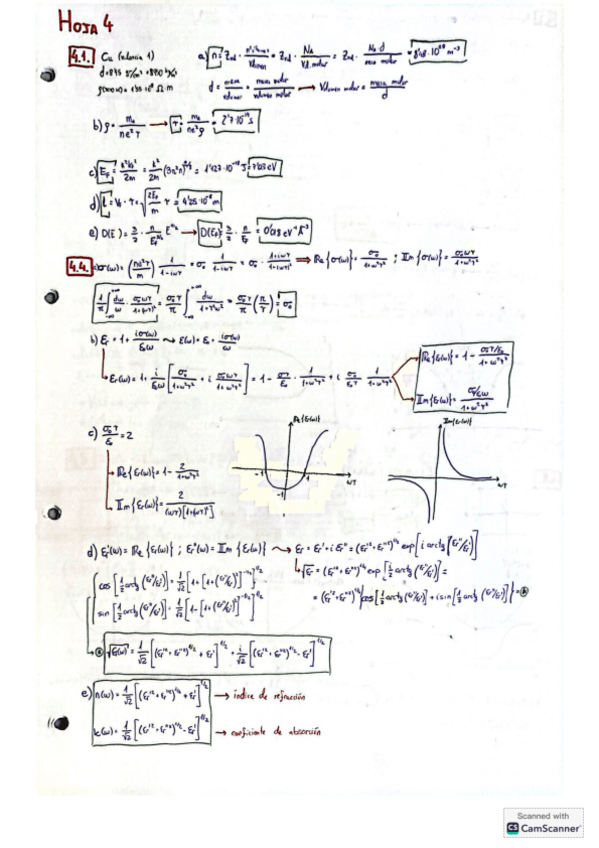 HOJA 4
4.1. Cu (valencia 1) a) n = Zval · = Zval · Na / Vol. molar = Zval · Na·d / masa molar = 8'48·10²⁸ m⁻³
d = masa / volumen = masa molar / volumen molar → Volumen molar = masa molar / d
b) ρ = m₀ / ne²τ → τ = m₀ / ne²ρ = 2'7·10⁻¹⁴ s
c) E_F = ħ²k_F² / 2m = ħ² / 2m (3π²n)^2/3 = J = 7'03 eV
d) l = v_F · τ = √(2E_F / m) τ = 4'25·10⁻⁸ m
e) D(E) = 3/2 · n / E_F^3/2 E^1/2 → D(E_F) = 3/2 · n / E_F = eV⁻¹ Å⁻³
4.4. a) σ(ω) = (ne²τ / m) 1 / 1-iωτ = σ₀ 1 / 1-iωτ = σ₀ · 1+iωτ / 1+ω²τ² ⇒ Re{σ(ω)} = σ₀ / 1+ω²τ² ; Im{σ(ω)} = σ₀ωτ / 1+ω²τ²
= σ₀τ / π ∫ dω / 1+τ²ω² = σ₀τ / π (π / τ) = σ₀
b) εr = 1 + iσ(ω) / ε₀ω ⇝ ε(ω) = ε₀ + iσ(ω) / ω
εr(ω) = 1 + i / ε₀ω [σ₀ / 1+ω²τ² + i σ₀ωτ / 1+ω²τ²] = 1 - σ₀τ / ε₀ · 1 / 1+ω²τ² + i
Re{εr(ω)} = 1 - σ₀τ/ε₀ / 1+ω²τ²
Im{εr(ω)} = σ₀/ε₀ω / 1+ω²τ²
c) σ₀τ / ε₀ = 2
Re{εr(ω)} = 1 - 2 / 1+ω²τ²
Im{εr(ω)} = 2 / (ωτ)[1+(ωτ)²]
Re{εr(ω)}
-1 1 ωτ
-1
Im{εr(ω)}
ωτ
d) εr'(ω) = Re{εr(ω)} ; εr''(ω) = Im{εr(ω)} ⇝ εr = εr' + i εr'' = (εr'² + εr''²)^1/2 exp[i arctg(εr''/εr')]
√εr = (εr'² + εr''²)^1/4 exp[i/2 arctg(εr''/εr')] =
= (εr'² + εr''²)^1/4 {cos[1/2 arctg(εr''/εr')] + i sin[1/2 arctg(εr''/εr')]} =
cos[1/2 arctg(εr''/εr')] = 1/√2 [1 + [1+(εr''/εr')²]^-1/2]^1/2
sin[1/2 arctg(εr''/εr')] = 1/√2 [1 - [1+(εr''/εr')²]^-1/2]^1/2
√εr(ω) = 1/√2 [(εr'² + εr''²)^1/2 + εr']^1/2 + i/√2 [(εr'² + εr''²)^1/2 - εr']^1/2
e) n(ω) = 1/√2 [(εr'² + εr''²)^1/2 + εr']^1/2 → índice de refracción
k(ω) = 1/√2 [(εr'² + εr''²)^1/2 - εr']^1/2 → coeficiente de absorción
Scanned with
CS CamScanner